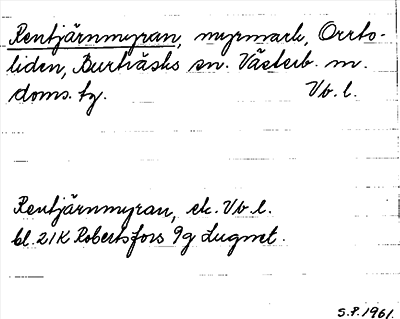 Rentjärnmyran, myrmark, Orrto-
liden, Burträsks sn. Västerb. m.
doms. tg. Vb. l.
Rentjärnmyran, ek. Vb l.
bl. 21K Robertsfors 9g Lugnet.
S.P. 1961.